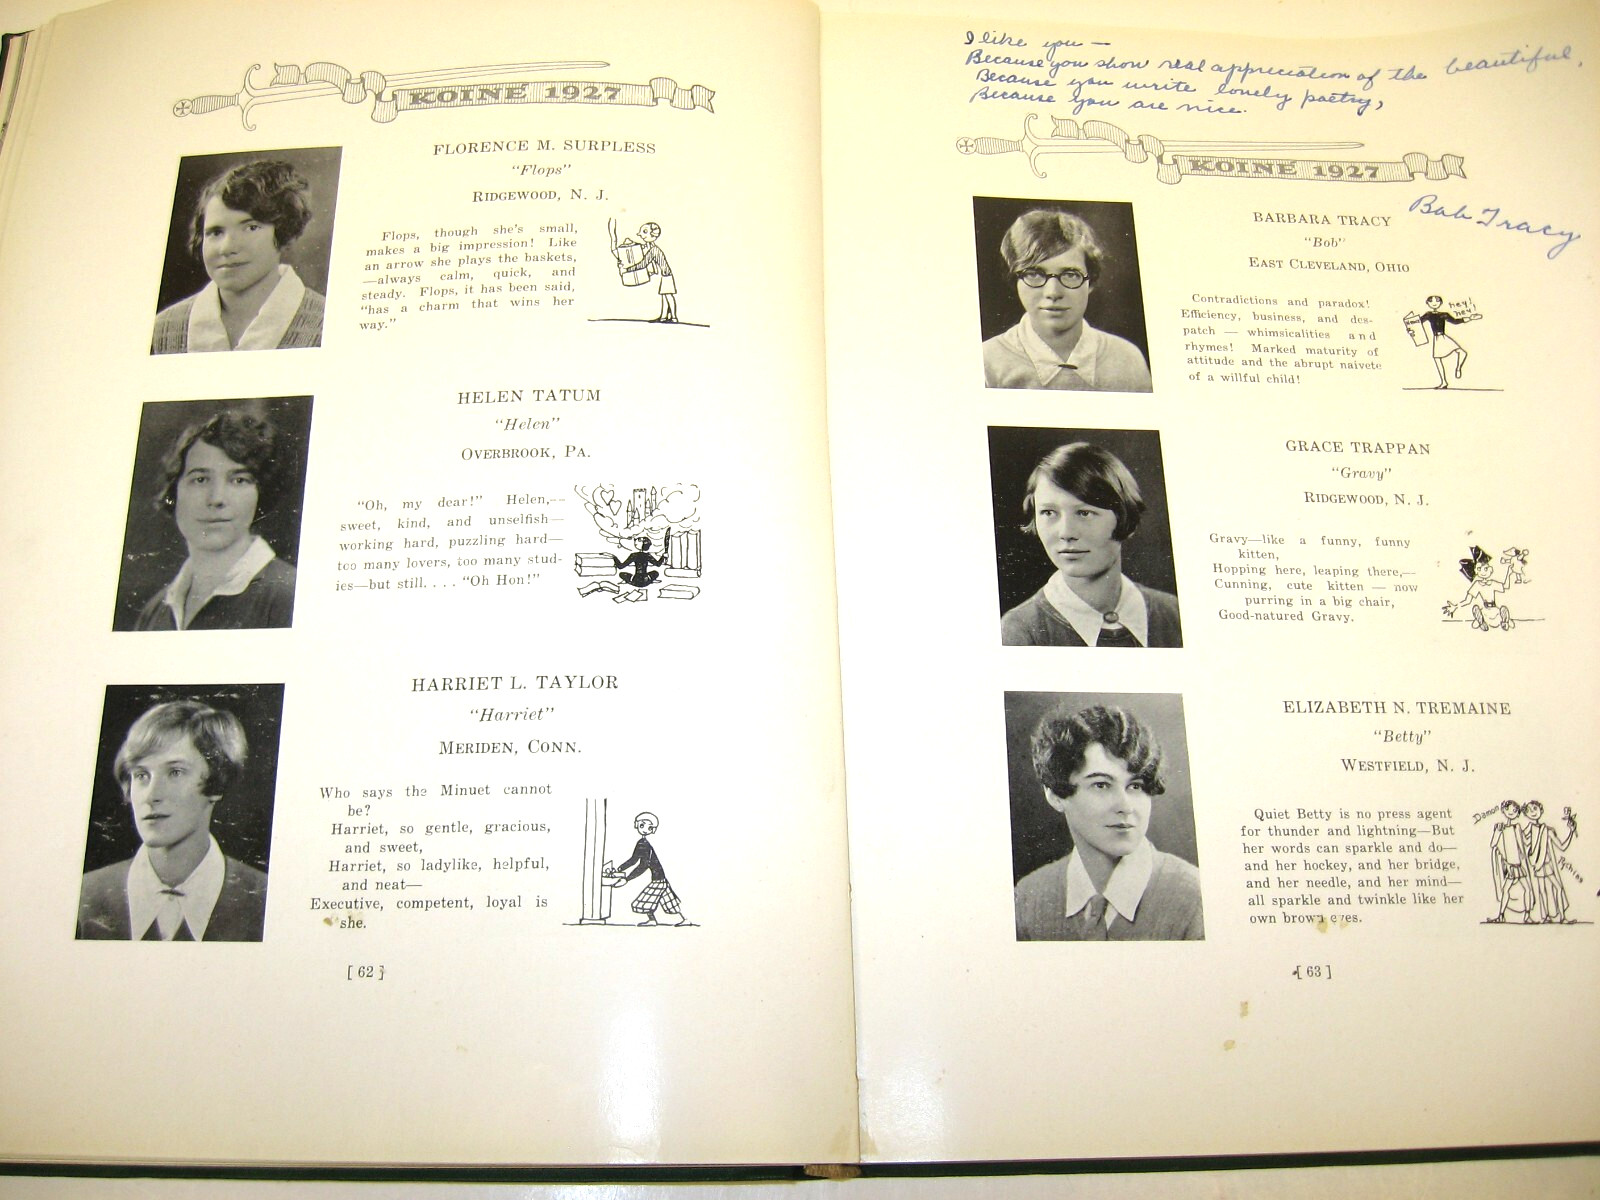 KOINÉ 1927
FLORENCE M. SURPLESS
"Flops"
RIDGEWOOD, N. J.
Flops, though she's small,
makes a big impression! Like
an arrow she plays the baskets,
—always calm, quick, and
steady. Flops, it has been said,
"has a charm that wins her
way."
HELEN TATUM
"Helen"
OVERBROOK, PA.
"Oh, my dear!" Helen,--
sweet, kind, and unselfish—
working hard, puzzling hard—
too many lovers, too many stud-
ies—but still. . . . "Oh Hon!"
HARRIET L. TAYLOR
"Harriet"
MERIDEN, CONN.
Who says the Minuet cannot
be?
Harriet, so gentle, gracious,
and sweet,
Harriet, so ladylike, helpful,
and neat—
Executive, competent, loyal is
she.
[ 62 ]
I like you —
Because you show real appreciation of the beautiful,
Because you write lonely poetry,
Because you are nice.
KOINÉ 1927
BARBARA TRACY
Bob Tracy
"Bob"
EAST CLEVELAND, OHIO
Contradictions and paradox!
Efficiency, business, and des-
patch — whimsicalities and
rhymes! Marked maturity of
attitude and the abrupt naivete
of a willful child!
hey!
hey!
GRACE TRAPPAN
"Gravy"
RIDGEWOOD, N. J.
Gravy—like a funny, funny
kitten,
Hopping here, leaping there,—
Cunning, cute kitten — now
purring in a big chair,
Good-natured Gravy.
ELIZABETH N. TREMAINE
"Betty"
WESTFIELD, N. J.
Quiet Betty is no press agent
for thunder and lightning—But
her words can sparkle and do—
and her hockey, and her bridge,
and her needle, and her mind—
all sparkle and twinkle like her
own brown eyes.
Damon
Pythias
[ 63 ]